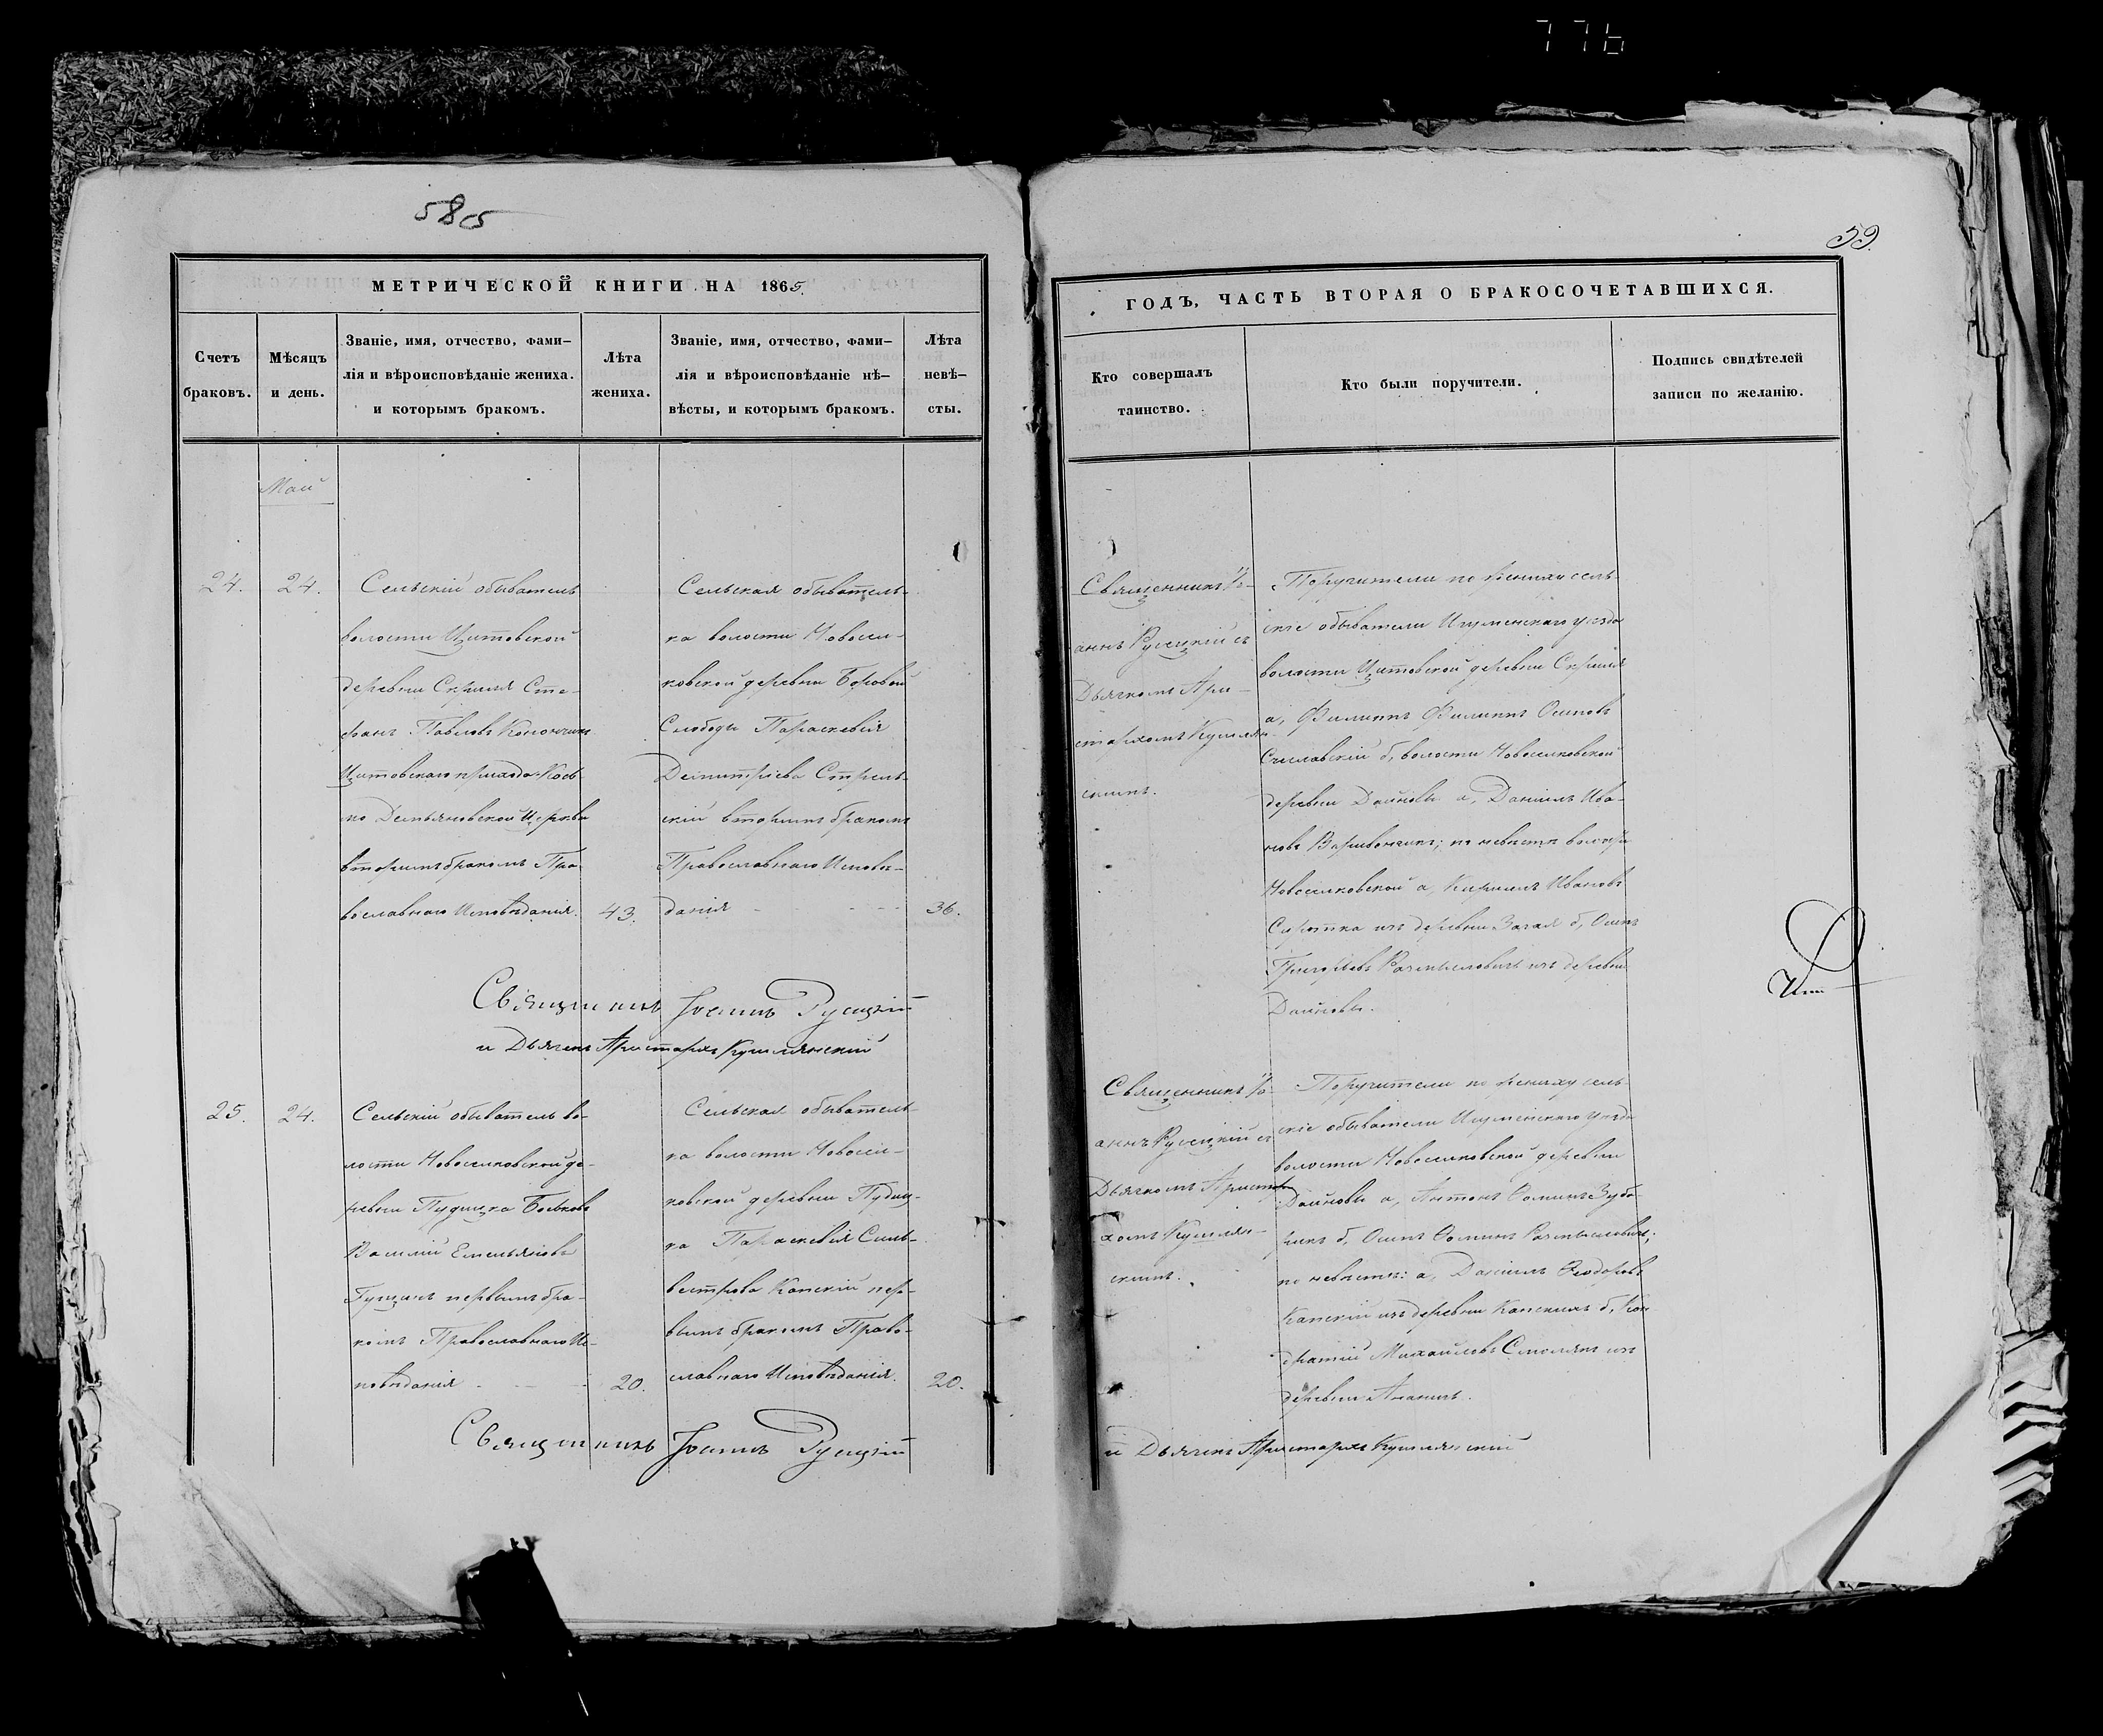 776
585
59.
МЕТРИЧЕСКОЙ КНИГИ НА 1865.
Счетъ
браковъ.
Мѣсяцъ
и день.
Званіе, имя, отчество, фами-
лія и вѣроисповѣданіе жениха.
и которымъ бракомъ.
Лѣта
жениха.
Званіе, имя, отчество, фами-
лія и вѣроисповѣданіе нѣ-
вѣсты, и которымъ бракомъ.
Лѣта
невѣ-
сты.
ГОДЪ, ЧАСТЬ ВТОРАЯ О БРАКОСОЧЕТАВШИХСЯ.
Кто совершалъ
таинство.
Кто были поручители.
Подпись свидѣтелей
записи по желанію.
Май
24.
24.
Сельскій обыватель
волости Цитовской
деревни Скриля Сте-
фанъ Павловъ
Цитовскаго прихода Козь-
мо Демьяновской Церкви
вторымъ бракомъ Пра-
вославнаго Исповѣданія.
43.
Сельская обыватель-
ка волости Новосел-
ковской деревни Боровой
Слободы Параскевія
Демитріева Стрель-
скій вторымъ бракомъ
Православнаго Исповѣ-
данія
36.
Священникъ Іо-
аннъ Русецкій съ
Дьячкомъ Ари-
стархомъ Кушлян-
скимъ.
Поручители по жениху сель-
скіе обыватели Игуменскаго уезда
волости Цитовской деревни Скриля
а, Филиппъ Филиппъ Осиповъ
б, волости Новоселковской
деревни Дайновы а, Даніилъ Ива-
новъ по невѣсте волости
Новоселковской а, Кириллъ Ивановъ
Сиротка изъ деревни Загая б, Осипъ
Григорьевъ изъ деревни
Дайновы.
Священникъ Іоаннъ Русецкій
и Дьячекъ Аристархъ Кушлянскій
25.
24.
Сельскій обыватель во-
лости Новоселковской де-
ревни Пудицка Боьковъ
Василій Емельяновъ
Гущанъ первымъ бра-
комъ Православнаго Ис-
повѣданія
20.
Сельская обыватель-
ка волости Новосел-
ковской деревни Пудиц-
ка Параскевія Силь-
вестрова Капскій пер-
вымъ бракомъ Право-
славнаго Исповѣданія.
20.
Священникъ Іо-
аннъ Русецкій съ
Дьячкомъ Аристар-
хомъ Кушлян-
скимъ.
Поручители по жениху сель-
скіе обыватели Игуменскаго уезда
волости Новоселковской деревни
Дайновы а, Антонъ Фоминъ
б, Осипъ Фоминъ
по невѣсте: а, Даніилъ Феодоровъ
Капскій изъ деревни б, Кон-
дратій Михайловъ Смолякъ изъ
деревни
Священникъ Іоаннъ Русецкій
и Дьячекъ Аристархъ Кушлянскій